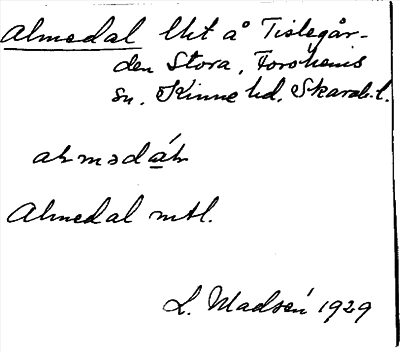 Almedal lht å Tislegår-
den Stora, Forshems
sn. Kinne hd. Skarab. l.
almedal mtl.
L. Madsén 1929